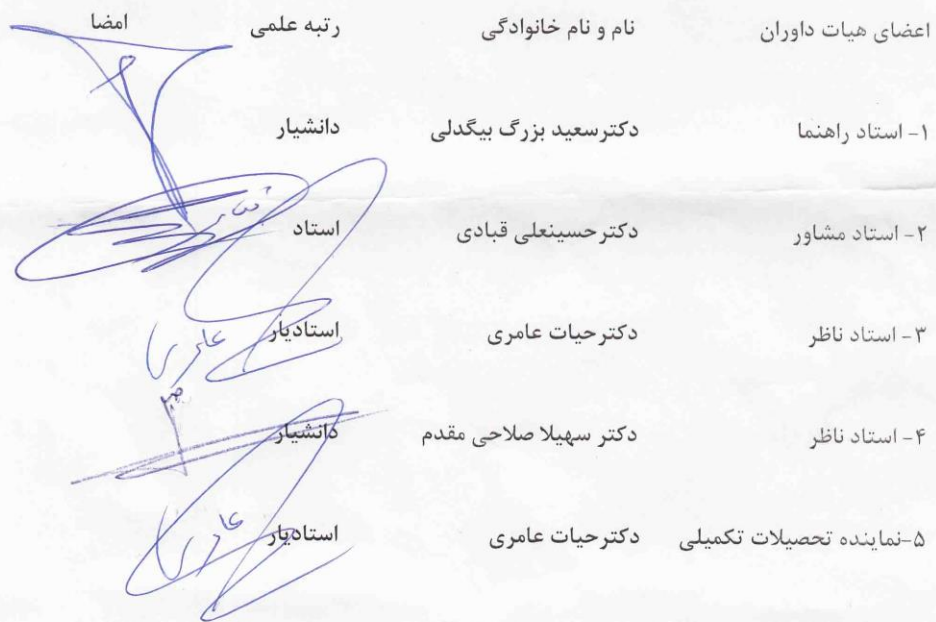 اعضای هیات داوران نام و نام خانوادگی رتبه علمی امضا
۱- استاد راهنما دکترسعید بزرگ بیگدلی دانشیار
۲- استاد مشاور دکترحسینعلی قبادی استاد
۳- استاد ناظر دکترحیات عامری استادیار
عامری
۴- استاد ناظر دکتر سهیلا صلاحی مقدم دانشیار
۵-نماینده تحصیلات تکمیلی دکترحیات عامری استادیار
عامری